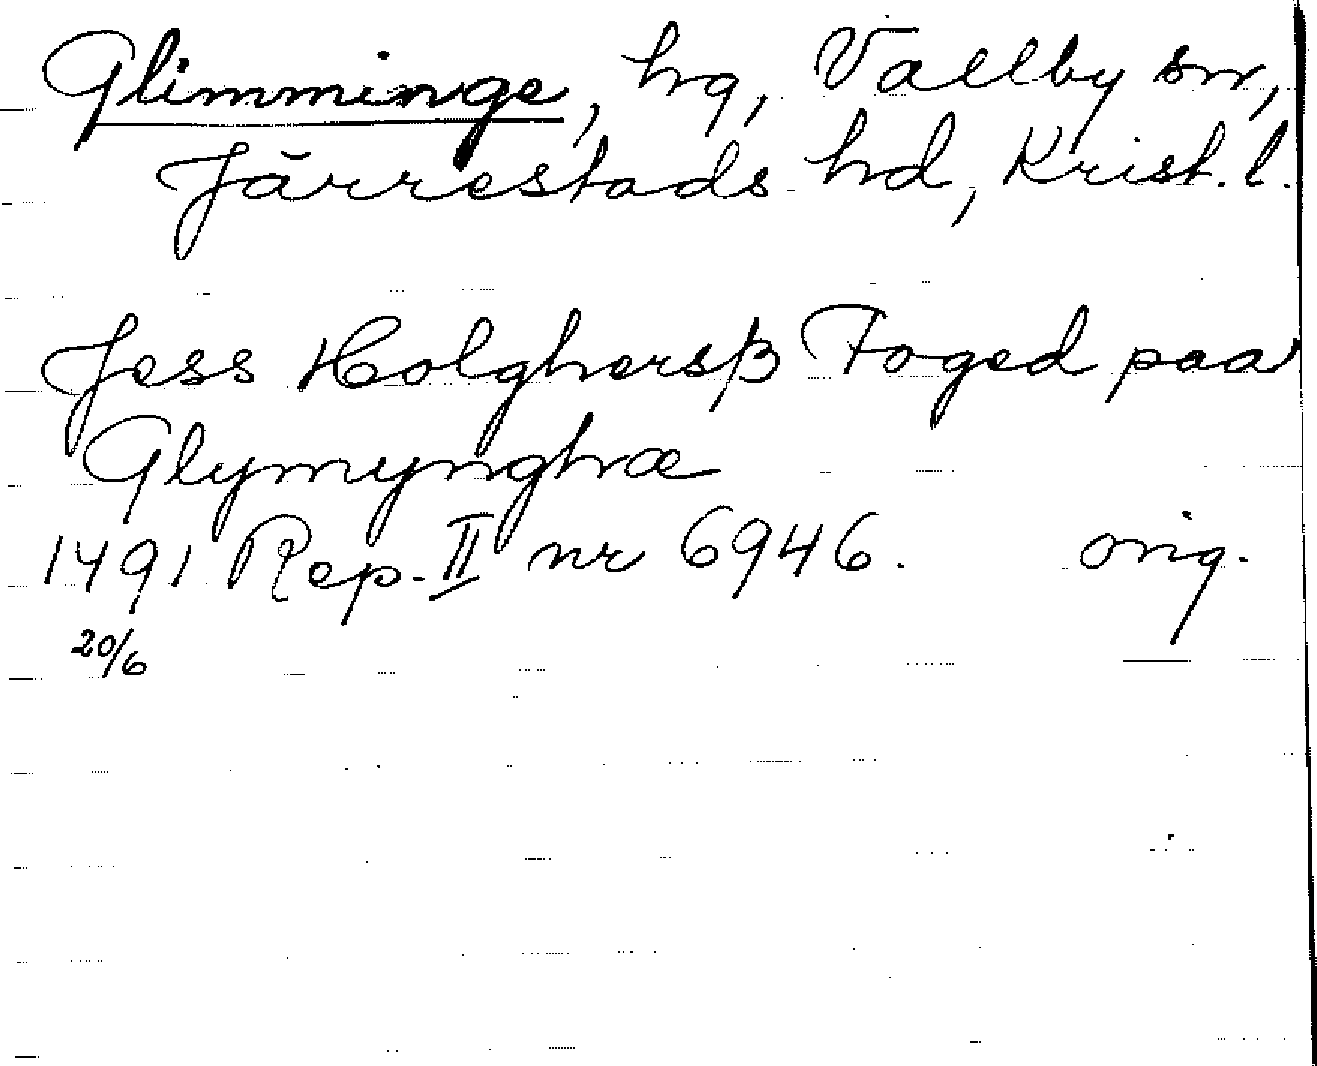 Glimminge, hg, Vallby sn,
Järrestads hd, Krist. l.
Jess Holghersß Foged paa
Glymynghæ
1491 Rep. II nr 6946. orig.
20/6